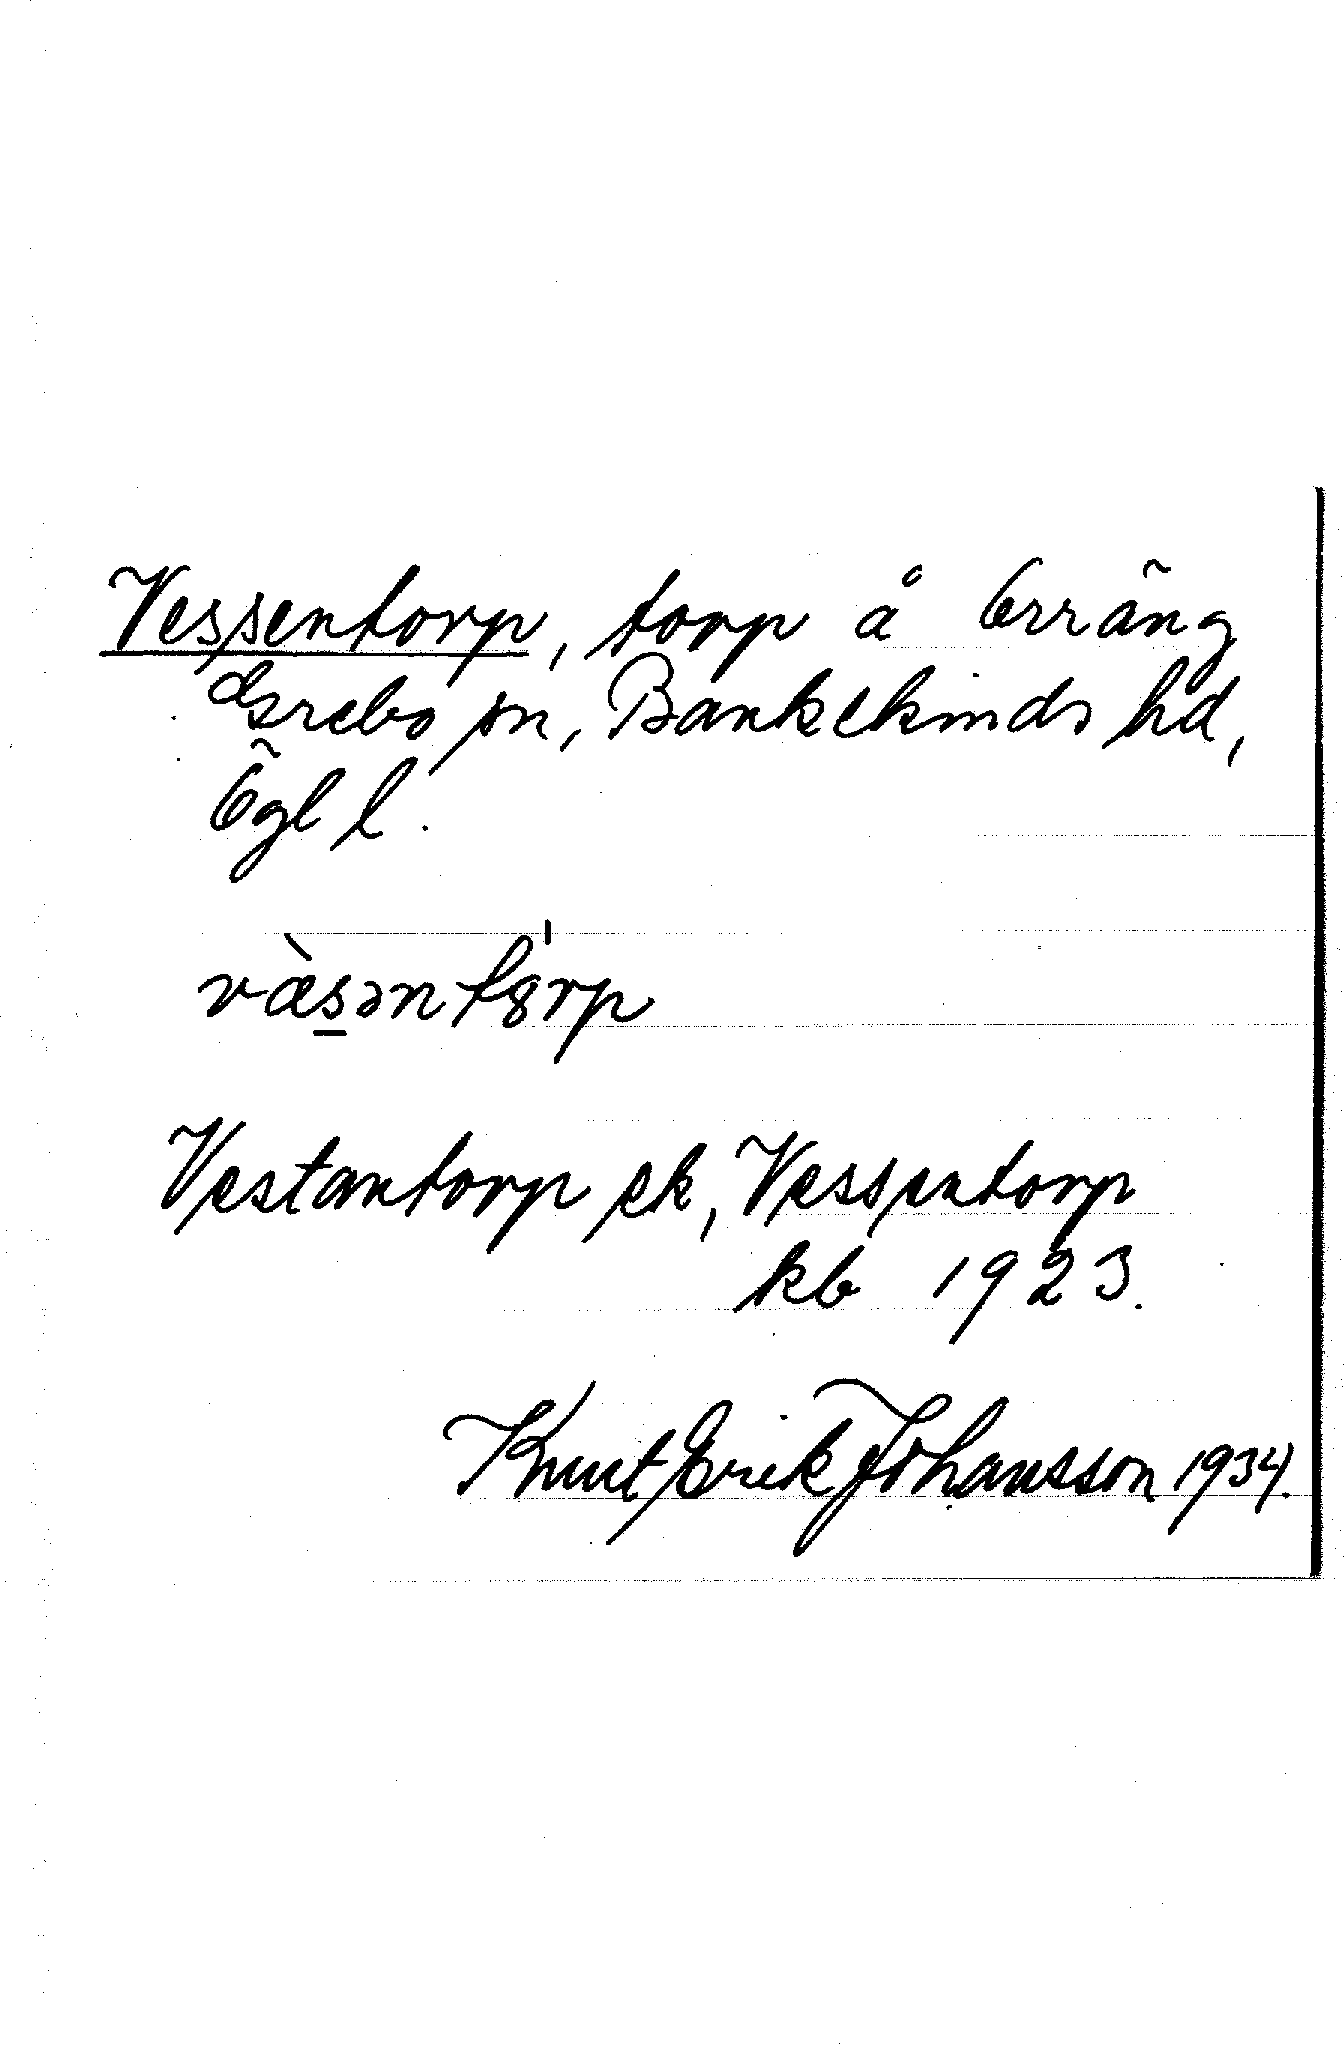 Vessentorp, torp å Orräng
Grebo sn, Bankekinds hd,
Ögl l.
væ̀s̲əntȣrp
Vestantorp ek, Vessentorp
kb 1923.
Knut Erik Johansson 1934.